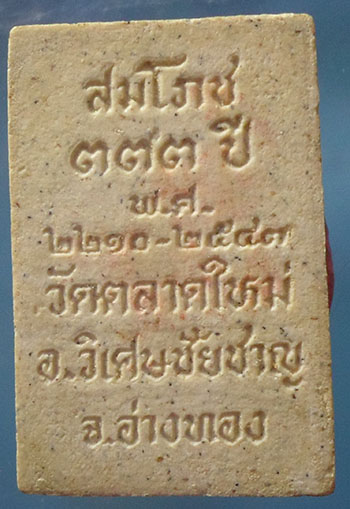 สมโภช
๓๓๓ ปี
พ.ศ.
๒๒๑๐-๒๕๔๓
วัดตลาดใหม่
อ.วิเศษชัยชาญ
จ.อ่างทอง